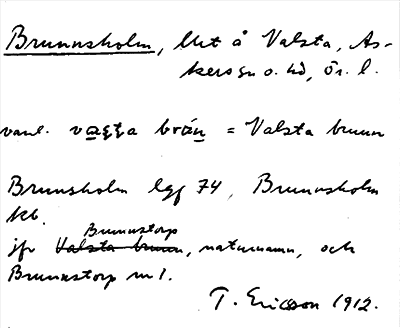 Brunnsholm, lht å Valsta, As-
kers sn o. hd, Ör. l.
vanl. va̲ʂʈa brǻn̲ = Valsta brunn
Brunsholm lgf 74, Brunnsholm
kb.
jfr Brunnstorp, naturnamn, och
Brunnstorp nr 1.
T. Ericsson 1912.